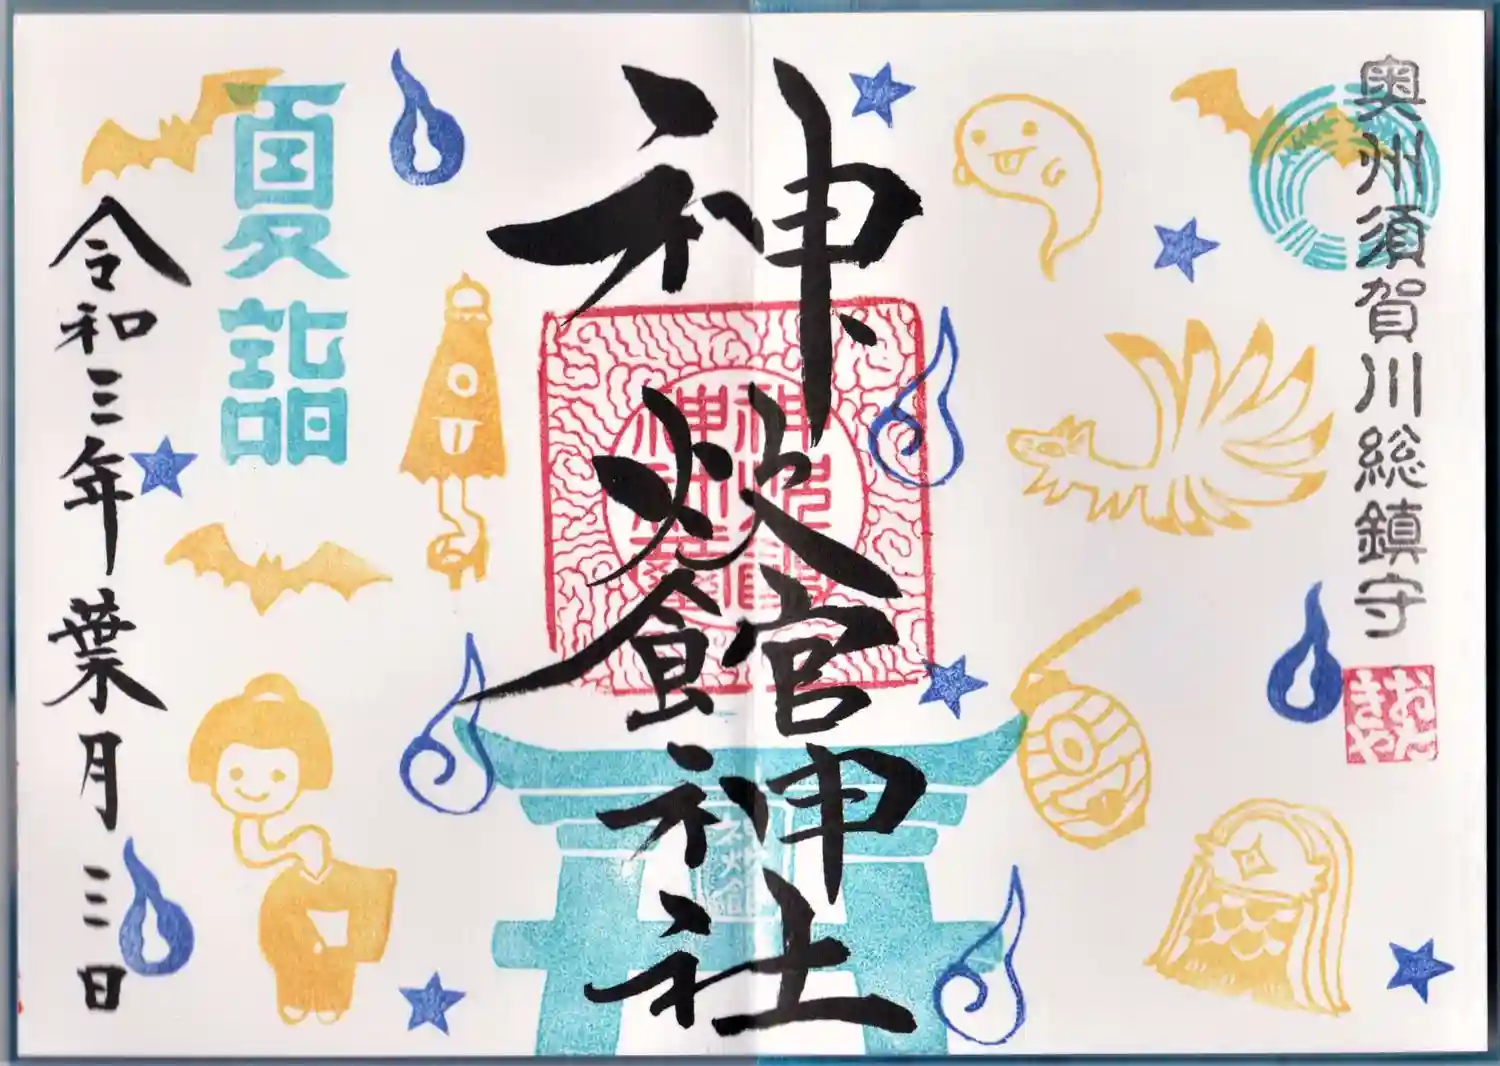 奥州須賀川総鎮守
おんきやさ
神炊館神社
夏詣
令和三年葉月三日